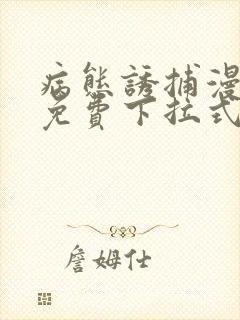 病態誘捕漫
免費下拉式
詹姆仕